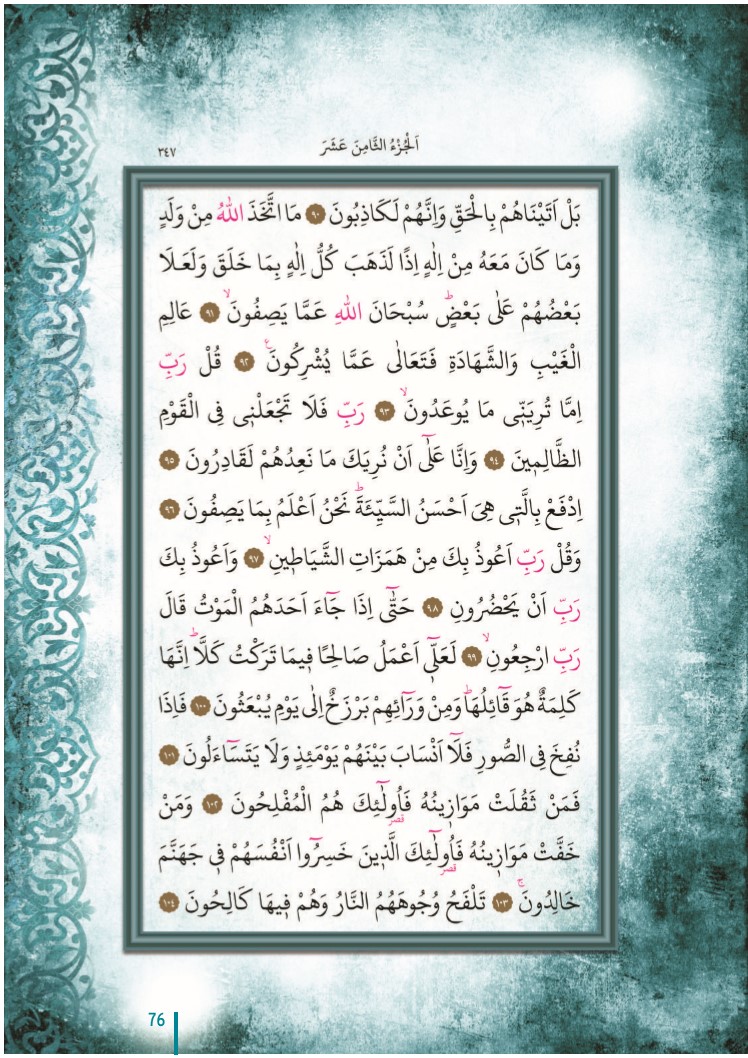 اَلْجُزْءُ الثَّامِنَ عَشَرَ
٣٤٧
بَلْ اَتَيْنَاهُمْ بِالْحَقِّ وَاِنَّهُمْ لَكَاذِبُونَ ﴿٩٠﴾ مَا اتَّخَذَ اللّٰهُ مِنْ وَلَدٍ
وَمَا كَانَ مَعَهُ مِنْ اِلٰهٍ اِذًا لَذَهَبَ كُلُّ اِلٰهٍ بِمَا خَلَقَ وَلَعَلَا
بَعْضُهُمْ عَلٰى بَعْضٍۜ سُبْحَانَ اللّٰهِ عَمَّا يَصِفُونَۙ ﴿٩١﴾ عَالِمِ
الْغَيْبِ وَالشَّهَادَةِ فَتَعَالٰى عَمَّا يُشْرِكُونَ۟ ﴿٩٢﴾ قُلْ رَبِّ
اِمَّا تُرِيَنّ۪ي مَا يُوعَدُونَۙ ﴿٩٣﴾ رَبِّ فَلَا تَجْعَلْن۪ي فِي الْقَوْمِ
الظَّالِم۪ينَ ﴿٩٤﴾ وَاِنَّا عَلٰٓى اَنْ نُرِيَكَ مَا نَعِدُهُمْ لَقَادِرُونَ ﴿٩٥﴾
اِدْفَعْ بِالَّت۪ي هِيَ اَحْسَنُ السَّيِّئَةَۜ نَحْنُ اَعْلَمُ بِمَا يَصِفُونَ ﴿٩٦﴾
وَقُلْ رَبِّ اَعُوذُ بِكَ مِنْ هَمَزَاتِ الشَّيَاط۪ينِۙ ﴿٩٧﴾ وَاَعُوذُ بِكَ
رَبِّ اَنْ يَحْضُرُونِ ﴿٩٨﴾ حَتّٰٓى اِذَا جَٓاءَ اَحَدَهُمُ الْمَوْتُ قَالَ
رَبِّ ارْجِعُونِۙ ﴿٩٩﴾ لَعَلّ۪ٓي اَعْمَلُ صَالِحًا ف۪يمَا تَرَكْتُ كَلَّاۜ اِنَّهَا
كَلِمَةٌ هُوَ قَٓائِلُهَاۜ وَمِنْ وَرَٓائِهِمْ بَرْزَخٌ اِلٰى يَوْمِ يُبْعَثُونَ ﴿١٠٠﴾ فَاِذَا
نُفِخَ فِي الصُّورِ فَلَٓا اَنْسَابَ بَيْنَهُمْ يَوْمَئِذٍ وَلَا يَتَسَٓاءَلُونَ ﴿١٠١﴾
فَمَنْ ثَقُلَتْ مَوَاز۪ينُهُ فَاُو۬لٰٓئِكَ هُمُ الْمُفْلِحُونَ ﴿١٠٢﴾ وَمَنْ
قصر
خَفَّتْ مَوَاز۪ينُهُ فَاُو۬لٰٓئِكَ الَّذ۪ينَ خَسِرُٓوا اَنْفُسَهُمْ ف۪ي جَهَنَّمَ
قصر
خَالِدُونَۚ ﴿١٠٣﴾ تَلْفَحُ وُجُوهَهُمُ النَّارُ وَهُمْ ف۪يهَا كَالِحُونَ ﴿١٠٤﴾
76